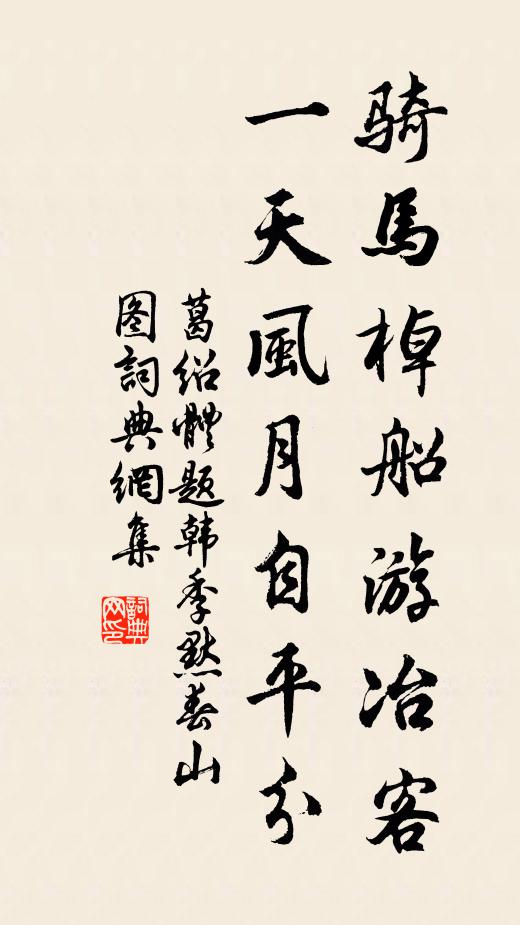 騎馬棹船游冶客
一天風月自平分
葛绍體题韩季默春山
图詞典網集
詞典
网印